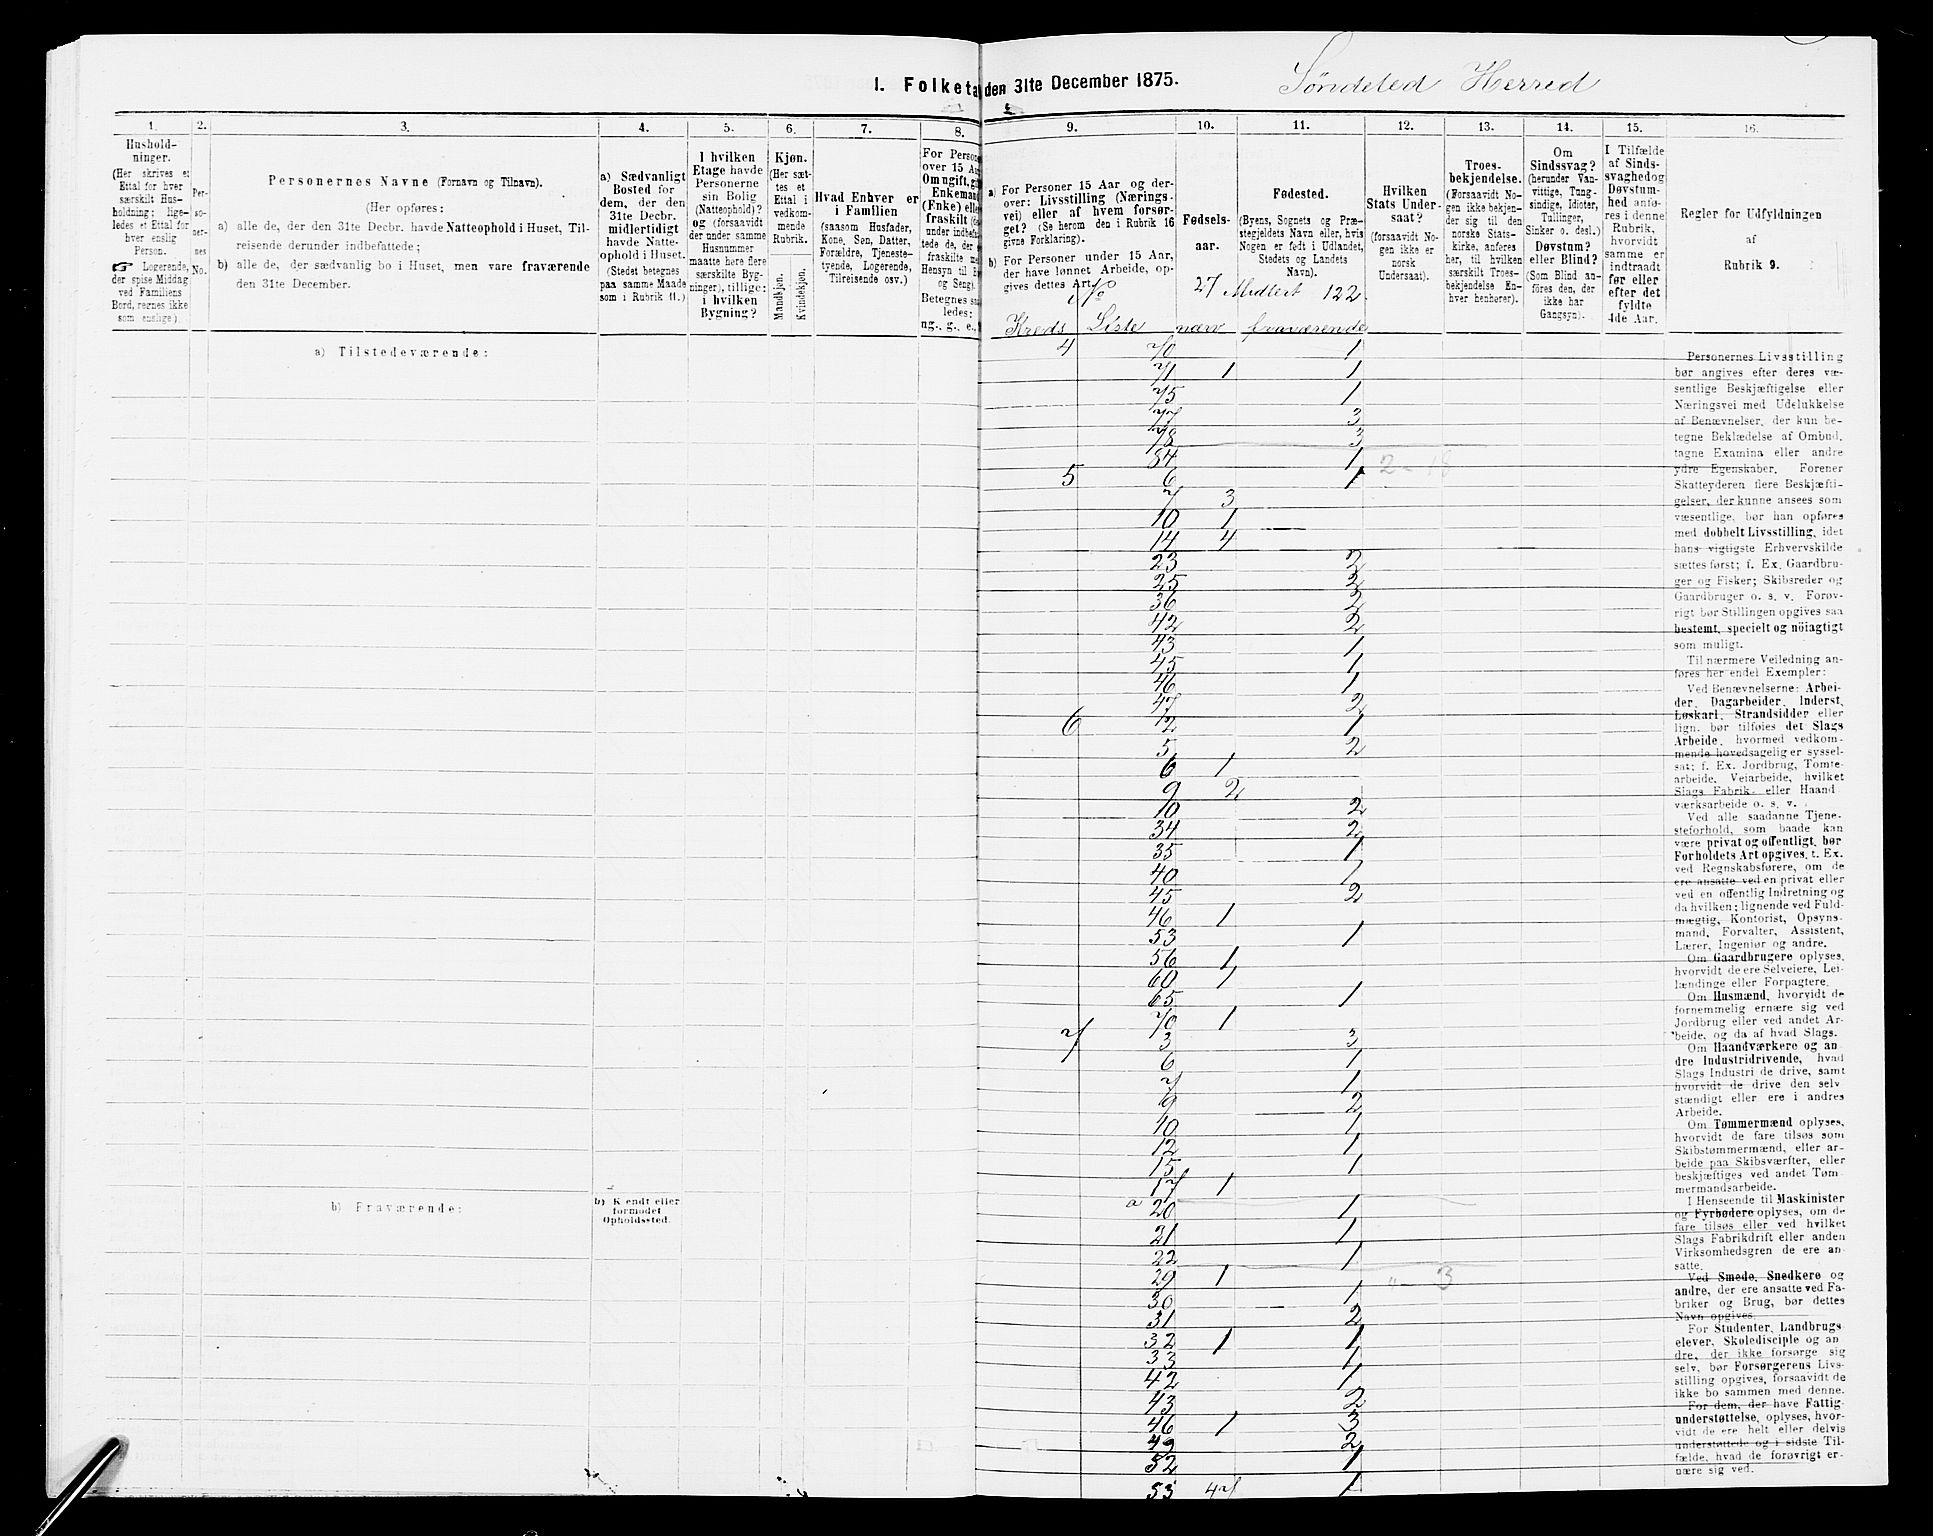 I. Folketa den 31te December 1875.
Søndeled Herred
1.
Hushold-
ninger.
(Her skrives et
Ettal for hver
særskilt Hus-
holdning; lige-
ledes et Ettal for
hver enslig
Person.
Logerende,
der spise Middag
ved Familiens
Bord, regnes ikke
som enslige).
2.
Per-
so-
ner-
nes
No.
3.
Personernes Navne (Fornavn og Tilnavn).
(Her opføres:
a) alle de, der den 31te Decbr. havde Natteophold i Huset, Til-
reisende derunder indbefattede;
b) alle de, der sædvanlig bo i Huset, men vare fraværende
den 31te December.
4.
a) Sædvanligt
Bosted for
dem, der den
31te Decbr.
midlertidigt
havde Natte-
ophold i Huset.
(Stedet betegnes
paa samme Maade
som i Rubrik 11.)
5.
I hvilken
Etage havde
Personerne
sin Bolig
(Natteophold)?
og (forsaavidt
der under samme
Husnummer
maatte høre flere
særskilte Byg-
ninger), tillige:
i hvilken
Bygning?
6.
Kjøn.
(Her sæt-
tes et
Ettal i
vedkom-
mende
Rubrik.
Mandkjøn.
Kvindekjøn.
7.
Hvad Enhver er
i Familien
(saasom Husfader,
Kone, Søn, Datter,
Forældre, Tjeneste-
tyende, Logerende,
Tilreisende osv.)
8.
For Persone
over 15 Aa
Om ugift, gi
Enkemand
(Enke) elle
fraskilt
under indbefa
tede de, de
fraskilte me
Hensyn til B
og Seng).
Betegnes sa
ledes:
ug., g., e.,
9.
a) For Personer 15 Aar og der-
over: Livsstilling (Nærings-
vei) eller af hvem forsør-
get? (Se herom den i Rubrik 16
givne Forklaring).
b) For Personer under 15 Aar,
der have lønnet Arbeide, op-
gives dettes Art.
10.
Fødsels-
aar.
11.
Fødested.
(Byens, Sognets og Præ-
stegjeldets Navn eller, hvis
Nogen er født i Udlandet,
Stedets og Landets
Navn).
12.
Hvilken
Stats Under-
saat?
(forsaavidt No-
gen ikke er
norsk
Undersaat).
13.
Troes-
bekjendelse.
(Forsaavidt No-
gen ikke bekjen-
der sig til den
norske Stats-
kirke, anføres
her, til hvilken
særskilt Troes-
bekjendelse En-
hver henhører).
14.
Om
Sindssvag?
(herunder Van-
vittige, Tung-
sindige, Idioter,
Tullinger,
Sinker o. desl.)
Døvstum?
eller Blind?
(Som Blind an-
føres den, der
ikke har
Gangsyn).
15.
I Tilfælde
af Sinds-
svaghed og
Døvstum-
hed anfø-
res i denne
Rubrik,
hvorvidt
samme er
indtraadt
før eller
efter det
fyldte
4de Aar.
16.
Regler for Udfyldningen
af
Rubrik 9.
No 27 Midlert 122
Kreds Liste nærv fraværende
a) Tilstedeværende:
4 70 1
71 1 1
75 1
77 3
78 3
84 1 2 - 18
5 6 1
7 3
10 1
14 4
23 2
25 2
36 2
42 2
43 1
45 1
46 1
47 2
6 2 1
5 2
6 1
9 2
10 2
34 2
35 1
40 1
45 2
46 1
53 1
56 1
60 1
65 1
70 1
7 3 3
6 1
7 1
9 2
10 1
12 1
15 1
17 1
a 20 1
21 1
22 1
29 1 " - 3
30 1
31 2
32 1 1
33 1
42 1
43 2
46 1 3
49 2
52 1
53 47 1
b) Fraværende:
b) Kjendt eller
formodet
Opholdssted.
Personernes Livsstilling
bør angives efter deres væ-
sentlige Beskjæftigelse eller
Næringsvei med Udelukkelse
af Benævnelser, der kun be-
tegne Beklædelse af Ombud,
tagne Examina eller andre
ydre Egenskaber. Forener
Skatteyderen flere Beskjæfti-
gelser, der kunne ansees som
væsentlige, bør han opføres
med dobbelt Livsstilling, idet
hans vigtigste Erhvervskilde
sættes først; f. Ex. Gaardbru-
ger og Fisker; Skibsreder og
Gaardbruger o. s. v. Forøv-
rigt bør Stillingen opgives saa
bestemt, specielt og nöiagtigt
som muligt.
Til nærmere Veiledning an-
føres her endel Exempler:
Ved Benævnelserne: Arbei-
der, Dagarbeider, Inderst,
Løskarl, Strandsidder eller
lign. bør tilføies det Slags
Arbeide, hvormed vedkom-
mende hovedsagelig er syssel-
sat; f. Ex. Jordbrug, Tomte-
arbeide, Veiarbeide, hvilket
Slags Fabrik- eller Haand
værksarbeide o. s. v.
Ved alle saadanne Tjene-
steforhold, som baade kan
være privat og offentligt, bør
Forholdets Art opgives, t. Ex.
ved Regnskabsførere, om de
ere ansatte ved en privat eller
ved en offentlig Indretning og
da hvilken; lignende ved Fuld-
mægtig, Kontorist, Opsyns-
mand, Forvalter, Assistent,
Lærer, Ingeniør og andre.
Om Gaardbrugere oplyses,
hvorvidt de ere Selveiere, Lei-
lændinge eller Forpagtere.
Om Husmænd, hvorvidt de
fornemmelig ernære sig ved
Jordbrug eller ved andet Ar-
beide, og da af hvad Slags.
Om Haandværkere og an
dre Industridrivende, hvad
Slags Industri de drive, samt
hvorvidt de drive den selv
stændigt eller ere i andres
Arbeide.
Om Tømmermænd oplyses,
hvorvidt de fare tilsøs som
Skibstømmermænd, eller ar-
beide paa Skibsværfter, eller
beskjæftiges ved andet Tøm
mermandsarbeide.
I Henseende til Maskinister
og Fyrbødere oplyses, om de
fare tilsøs eller ved hvilket
Slags Fabrikdrift eller anden
Virksomhedsgren de ere an-
satte.
Ved Smede, Snedkere og
andre, der ere ansatte ved Fa-
briker og Brug, bør dettes
Navn opgives.
For Studenter, Landbrugs
elever, Skoledisciple og an
dre, der ikke forsørge sig
selv, bør Forsørgerens Livs-
stilling opgives, forsaavidt de
ikke bo sammen med denne.
For dem, der have Fattig-
understøttelse, oplyses, hvor-
vidt de ere helt eller delvis
understøttede og i sidste Til-
fælde, hvad de forøvrigt er-
nære sig ved.